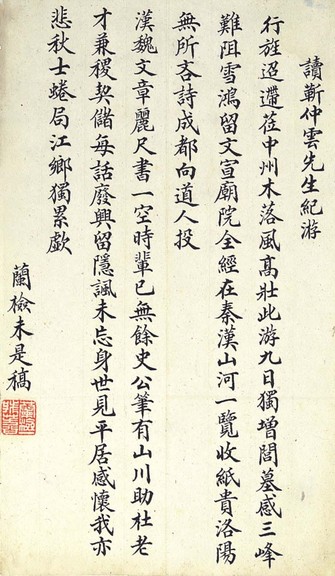 讀靳仲雲先生紀游
行旌迢遞莅中州木落風高壯此游九日獨增問墓感三峰
難阻雪鴻留文宣廟院全經在秦漢山河一覽收紙貴洛陽
無所吝詩成都向道人投
漢魏文章麗尺書一空時輩已無餘史公筆有山川助杜老
才兼稷契儲每話廢興留隱諷未忘身世見平居感懷我亦
悲秋士蜷局江鄉獨累歔
蘭檢未是稿